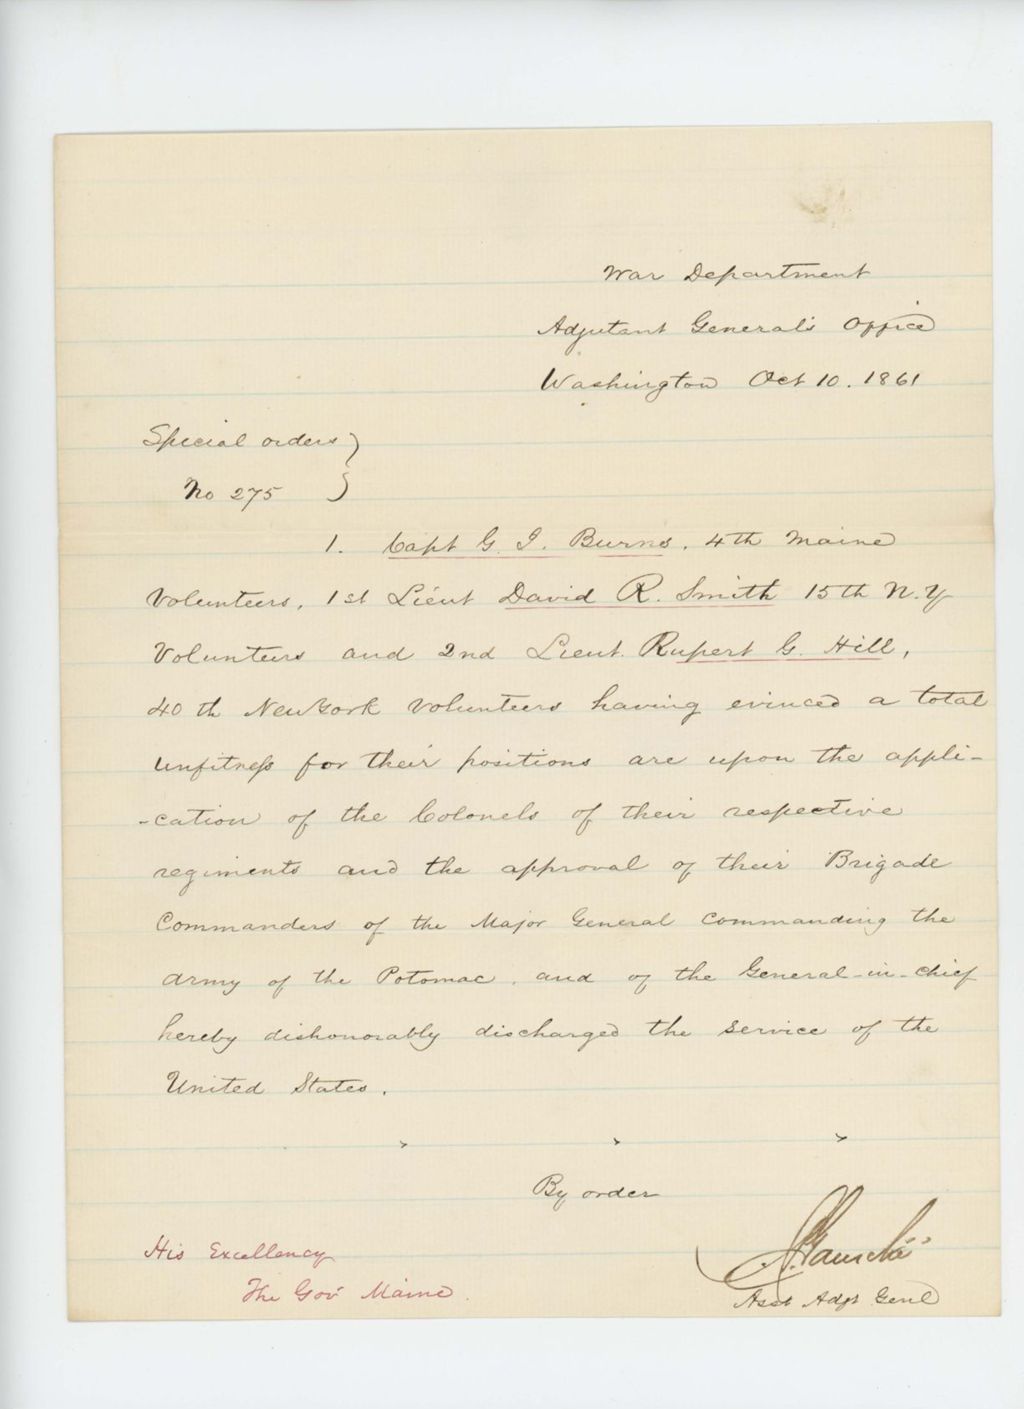 War Department
Adjutant General's Office
Washington Oct 10. 1861
Special orders }
No 275
1. Capt G. J. Burns, 4th Maine
Volunteers, 1st Lieut David R. Smith 15th N.Y
Volunteers and 2nd Lieut. Rupert G. Hill,
40th New York Volunteers having evinced a total
unfitness for their positions are upon the appli-
-cation of the Colonels of their respective
regiments and the approval of their Brigade
Commanders of the Major General Commanding the
Army of the Potomac, and of the General-in-chief
hereby dishonorably discharged the service of the
United States.
" " "
By order
His Excellency
The Gov Maine.
Asst Adjt Genl